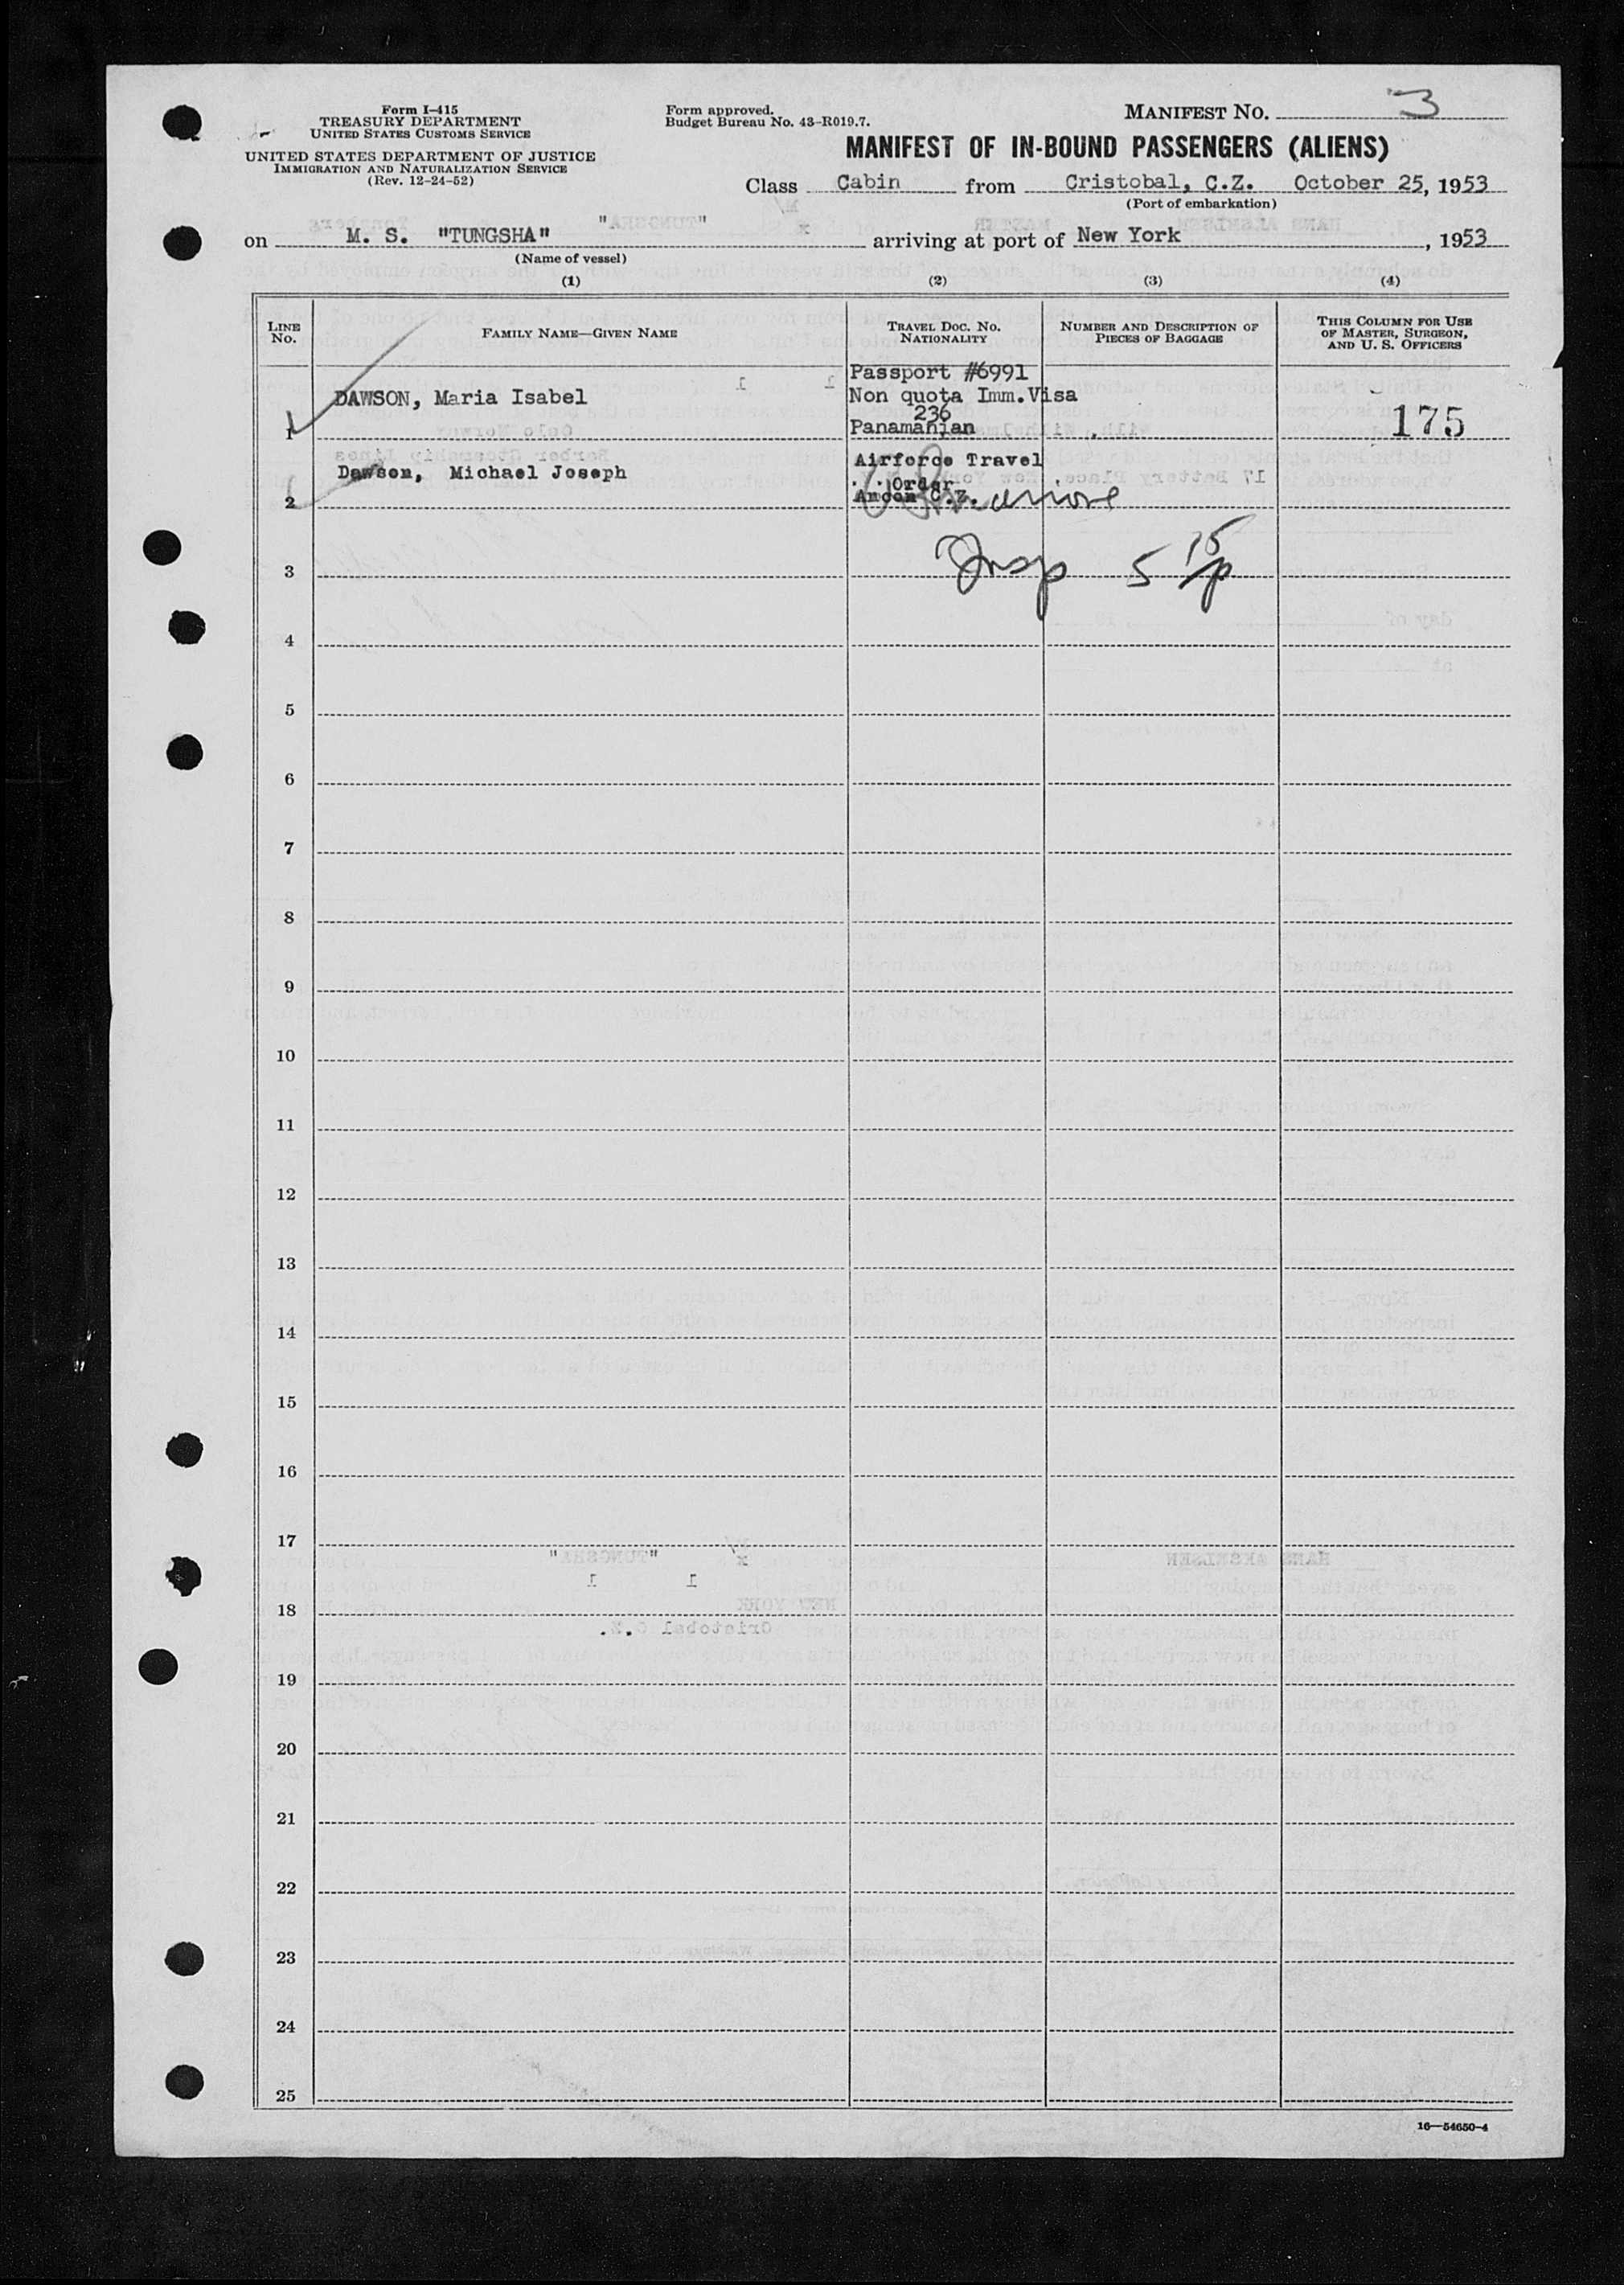 Form I-415
TREASURY DEPARTMENT
UNITED STATES CUSTOMS SERVICE
UNITED STATES DEPARTMENT OF JUSTICE
IMMIGRATION AND NATURALIZATION SERVICE
(Rev. 12-24-52)
Form approved.
Budget Bureau No. 43-R019.7.
MANIFEST NO. 3
MANIFEST OF IN-BOUND PASSENGERS (ALIENS)
Class Cabin from Cristobal, C.Z. October 25, 1953
(Port of embarkation)
on M. S. "TUNGSHA" arriving at port of New York, 1953
(Name of vessel)
(1) (2) (3) (4)
LINE NO. FAMILY NAME—GIVEN NAME TRAVEL DOC. NO. NATIONALITY NUMBER AND DESCRIPTION OF PIECES OF BAGGAGE THIS COLUMN FOR USE OF MASTER, SURGEON, AND U. S. OFFICERS
Passport #6991
DAWSON, Maria Isabel Non quota Imm.Visa
236
1 Panamanian 175
Dawson, Michael Joseph Airforce Travel
Order
2 Ancon C.Z.
3 Insp 5 15/p
4
5
6
7
8
9
10
11
12
13
14
15
16
17
18
19
20
21
22
23
24
25
16—54650-4